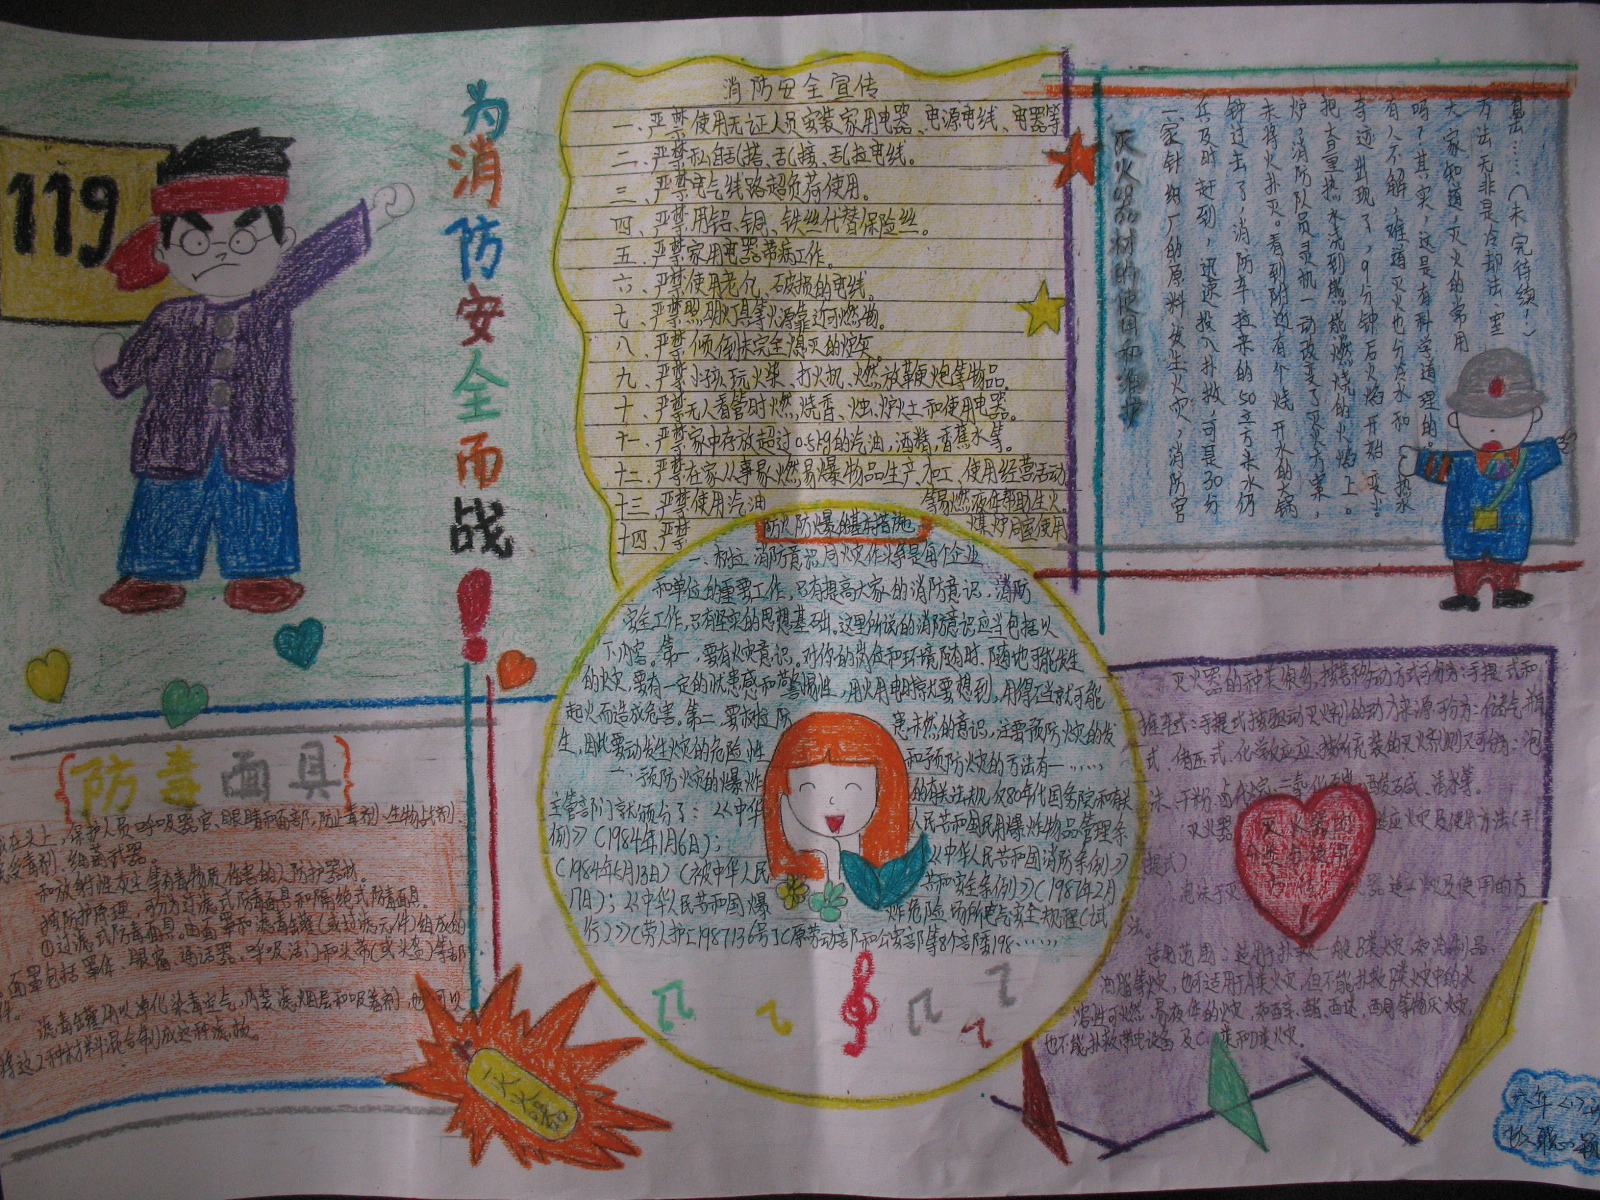 119
为消防安全而战！
消防安全宣传
一、严禁使用无证人员安装家用电器、电源电线、电器等
二、严禁私自乱搭、乱接、乱拉电线。
三、严禁电气线路超负荷使用。
四、严禁用铝、铜、铁丝代替保险丝。
五、严禁家用电器带病工作。
六、严禁使用老化、破损的电线。
七、严禁照明灯具等火源靠近可燃物。
八、严禁倾倒未完全熄灭的炉灰。
九、严禁小孩玩火柴、打火机、燃放鞭炮等物品。
十、严禁无人看管时燃烧香、烛、炉灶和使用电器。
十一、严禁家中存放超过0.5kg的汽油，酒精，香蕉水等。
十二、严禁在家从事易燃易爆物品生产、加工、使用经营活动
十三、严禁使用汽油 等易燃液体帮助生火。
十四、严禁 煤炉同室使用
灭火器材的使用和维护
一家针织厂的原料发生火灾，消防官
兵及时赶到，迅速投入扑救，可是30分
钟过去了，消防车拉来的50立方米水仍
未将火扑灭。看到附近有个烧开水的大锅
炉，消防队员灵机一动改变了灭火方案，
把大量热水浇到熊熊燃烧的火焰上。
奇迹出现了，9分钟后火焰开始变小。
有人不解，难道灭火也分冷水和热水
吗？其实，这是有科学道理的。
大家知道，灭火的常用
方法无非是冷却法、窒
息……（未完待续！）
防火防爆的基本措施
一、树立消防意识，同火灾作斗争是每个企业
和单位的重要工作，只有提高大家的消防意识，消防
安全工作，只有坚实的思想基础。这里所说的消防意识应当包括以
下内容。第一，要有火灾意识。对你的岗位和环境随时、随地可能发生
的火灾，要有一定的忧患感和警惕性，用火用电时就要想到，用得不当就可能
起火而造成危害。第二，要树立防 患未然的意识，注要预防火灾的发
生，因此要动发生火灾的危险性 和预防火灾的方法有一……
二、预防火灾的爆炸 的有关法规，仅80年代国务院和有关
主管部门就颁分了：《中华 人民共和国民用爆炸物品管理条
例》（1984年1月6日）； 《中华人民共和国消防条例》
（1984年5月13日）（被中华人民 共和安全条例》（1987年2月
17日）；《中华人民共和国爆 炸危险场所电气安全规程（试
行）》（劳人护［1987］36号）（原劳动部和公安部等8个部委198……
防毒面具
戴在头上，保护人员呼吸器官、眼睛和面部，防止毒剂、生物战剂
和放射性灰尘等有毒物质伤害的人防护器材。
按防护原理，可分为过滤式防毒面具和隔绝式防毒面具。
①过滤式防毒面具。由面罩和滤毒罐（或过滤元件）组成的
面罩包括罩体、眼窗、通话器、呼吸活门和头带（或头盔）等部
件。
滤毒罐用以净化染毒空气，内装滤烟层和吸着剂，也可以
将这2种材料混合制成这种滤板。
灭火器
灭火器的种类很多，按其移动方式可分为：手提式和
推车式；手提式按驱动灭火剂的动力来源可分为：储气瓶
式、储压式、化学反应；按所充装的灭火剂则又可分为：泡
沫、干粉、卤代烷、二氧化碳、酸碱、清水等。
灭火器 适应火灾及使用方法（手
提式）
灭火器的
分类与使用
方法！
适用范围：适用于扑救一般B类火灾，如油制品、
油脂等火灾，也可适用于A类火灾，但不能扑救B类火灾中的水
溶性可燃、易液体的火灾，如醇、酯、醚、酮等物质火灾，
也不能扑救带电设备及C类和D类火灾。